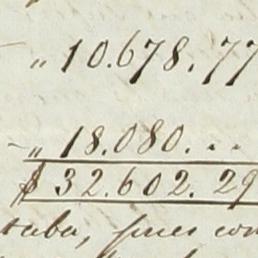 " 10.678.77
" 18.080...
$ 32.602.29
taba, pues con